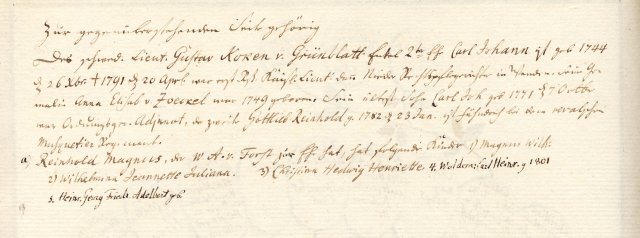 Zur gegenüberstehenden Seite gehörig
Des schwed. Lieut. Gustav Koken v. Grünblatt Enkel 2ter ff Carl Johann ist geb 1744
d 26 Xbr. † 1791 d 20 April. war erst Rß Kaiserl. Lieut. dann in Wenden. Seine Ge
malin Anna Elisab v. Zoeckel war 1749 geboren. Sein ältest. Sohn Carl Joh geb 1771 d 7 Octbr
war Ordnungsger. Adjunct, der zweite Gottlieb Reinhold g. 1782 d 23 Jan. ist Fähndrich bei dem revalschen
Musquetier Regiment.
a) Reinhold Magnus, der W A. v. Forst zur ff hat, hat folgende Kinder 1) Magnus Wilh.
2) Wilhelmina Jeannette Juliana. 3) Christina Hedwig Henriette 4. Woldemar Carl Heinr. g 1801
5. Herm. Georg Friedr. Adelbert geb.